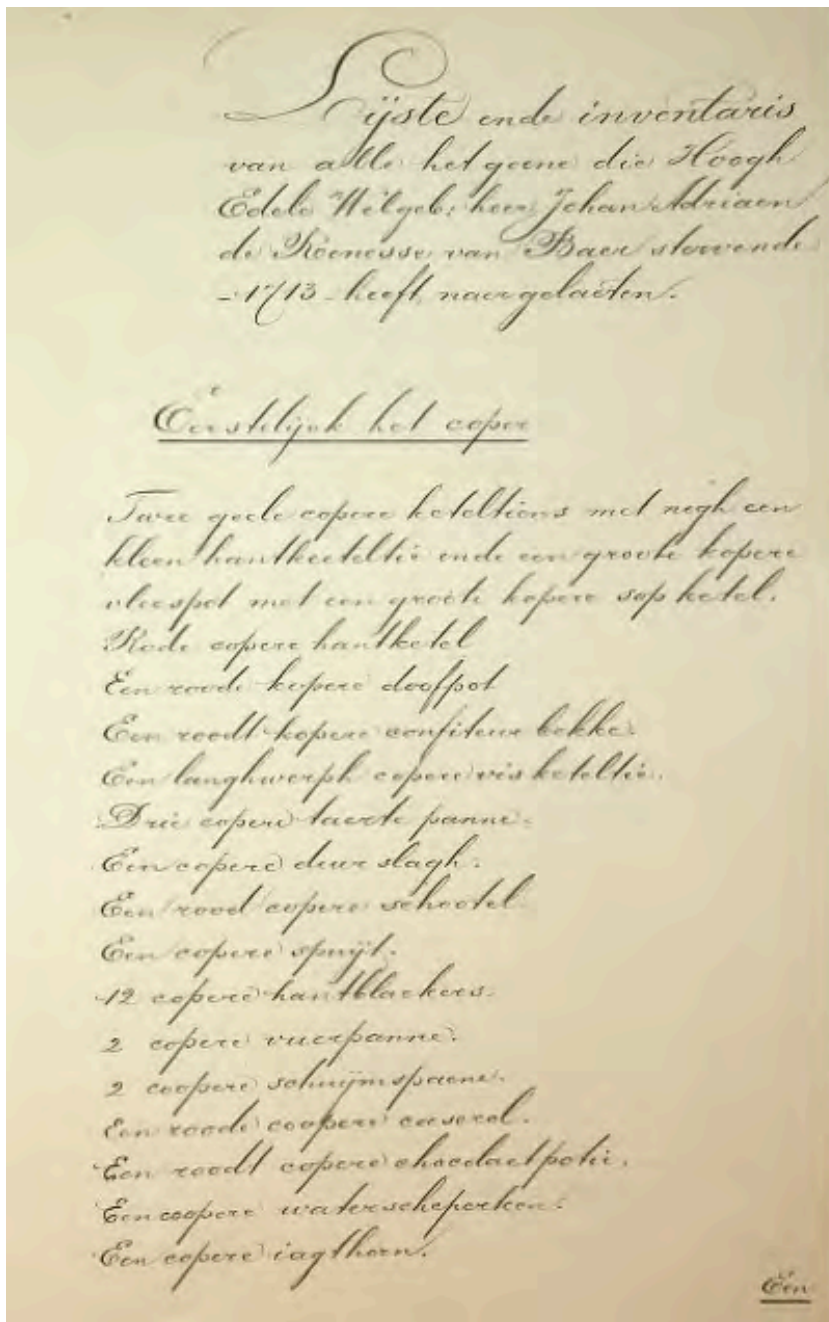 Lijste ende inventaris
van alle hetgeene die Hoogh
Edele Wilgeb: heer Johan Adriaen
de Reenesse van Baer stervende
- 1713 - heeft naergelaeten.
Eerstelijck het coper
Twee geele copere keteltiens met nogh een
kleen hantkeeteltie ende een groote kopere
vleespot met een groote kopere sop ketel.
Rode copere hantketel
Een roode kopere doofpot
Een roodt kopere confiteur bekke.
Een langhwerph copere vis keteltie.
Drie copere taerte panne.
Een copere deurslagh.
Een rood copere schootel
Een copere spuijt.
12 copere hantblackers.
2 copere vuerpanne.
2 coopere schuijmspaene.
Een roode coopere caserol.
Een roodt copere chocolaetpotie.
Een coopere waterscheperken.
Een copere iagthorn.
Een